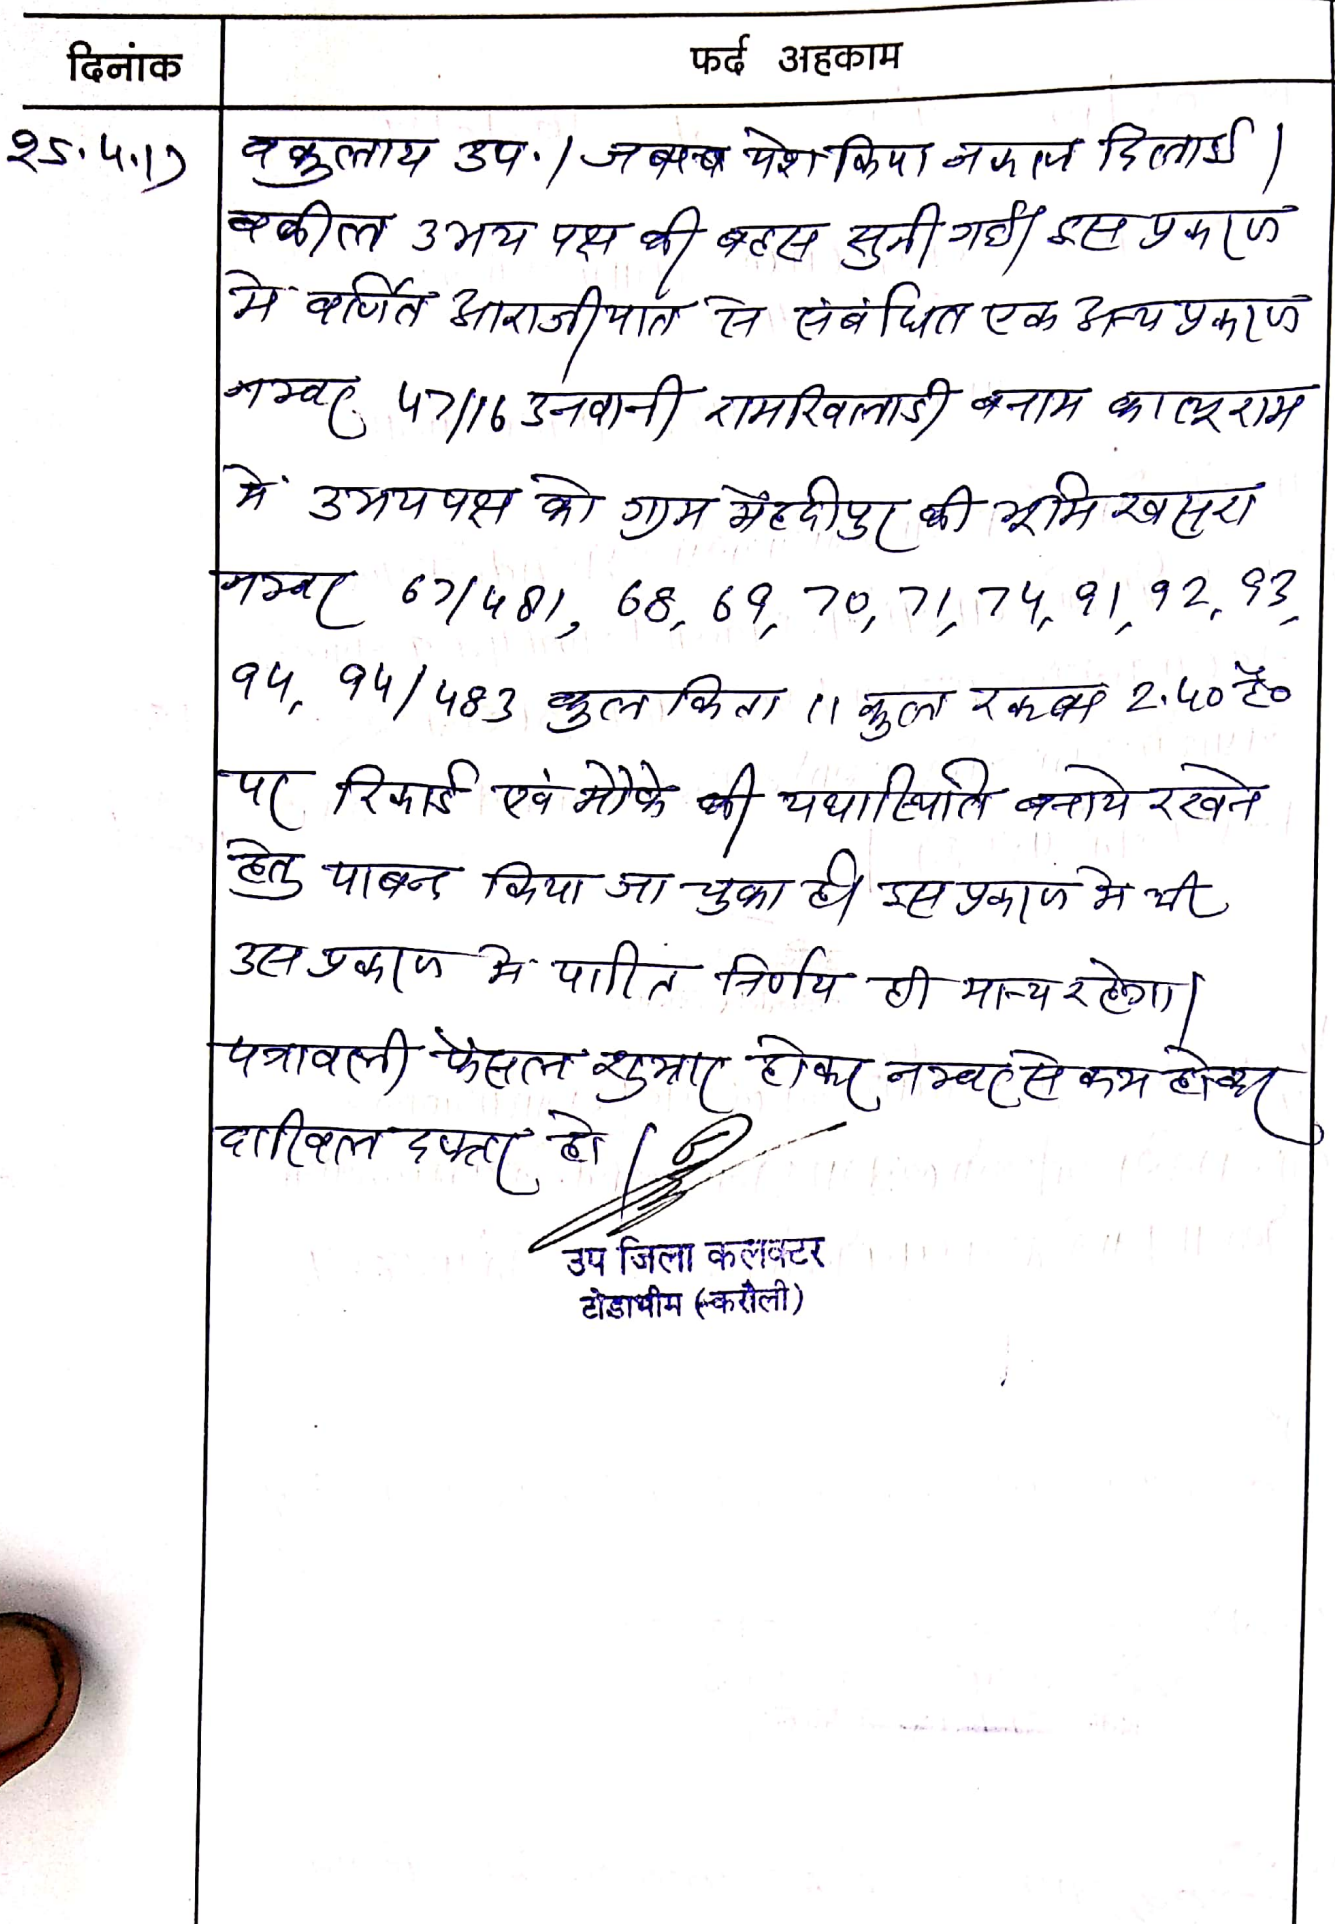 दिनांक
फर्द अहकाम
25.4.17 वकुलाय उप.। जबाब पेश किया नकल दिलाई।
वकील उभय पक्ष की बहस सुनी गई। इस प्रकरण
में वर्णित आराजीयात से संबंधित एक अन्य प्रकरण
नम्बर 47/16 उनवानी रामखिलाडी बनाम कालूराम
में उभयपक्ष को ग्राम मेंहदीपुर की भूमि खसरा
नम्बर 67/481, 68, 69, 70, 71, 74, 91, 92, 93,
94, 94/483 कुल किता 11 कुल रकबा 2.40 है०
पर रिकार्ड एवं मौके की यथास्थिति बनाये रखने
हेतु पाबन्द किया जा चुका है। इस प्रकरण में भी
उस प्रकरण में पारित निर्णय ही मान्य रहेगा।
पत्रावली फैसल शुमार होकर नम्बर से कम होकर
दाखिल दफ्तर हो।
उप जिला कलक्टर
टोडाभीम (करौली)